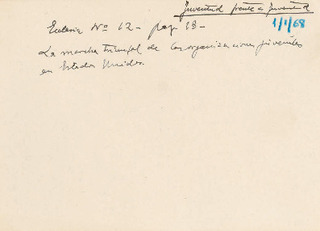 Juventud frente a juventud
1/1/68
Nº 12 - pag 13 -
La marcha triunfal de las organizaciones juveniles
en Estados Unidos.